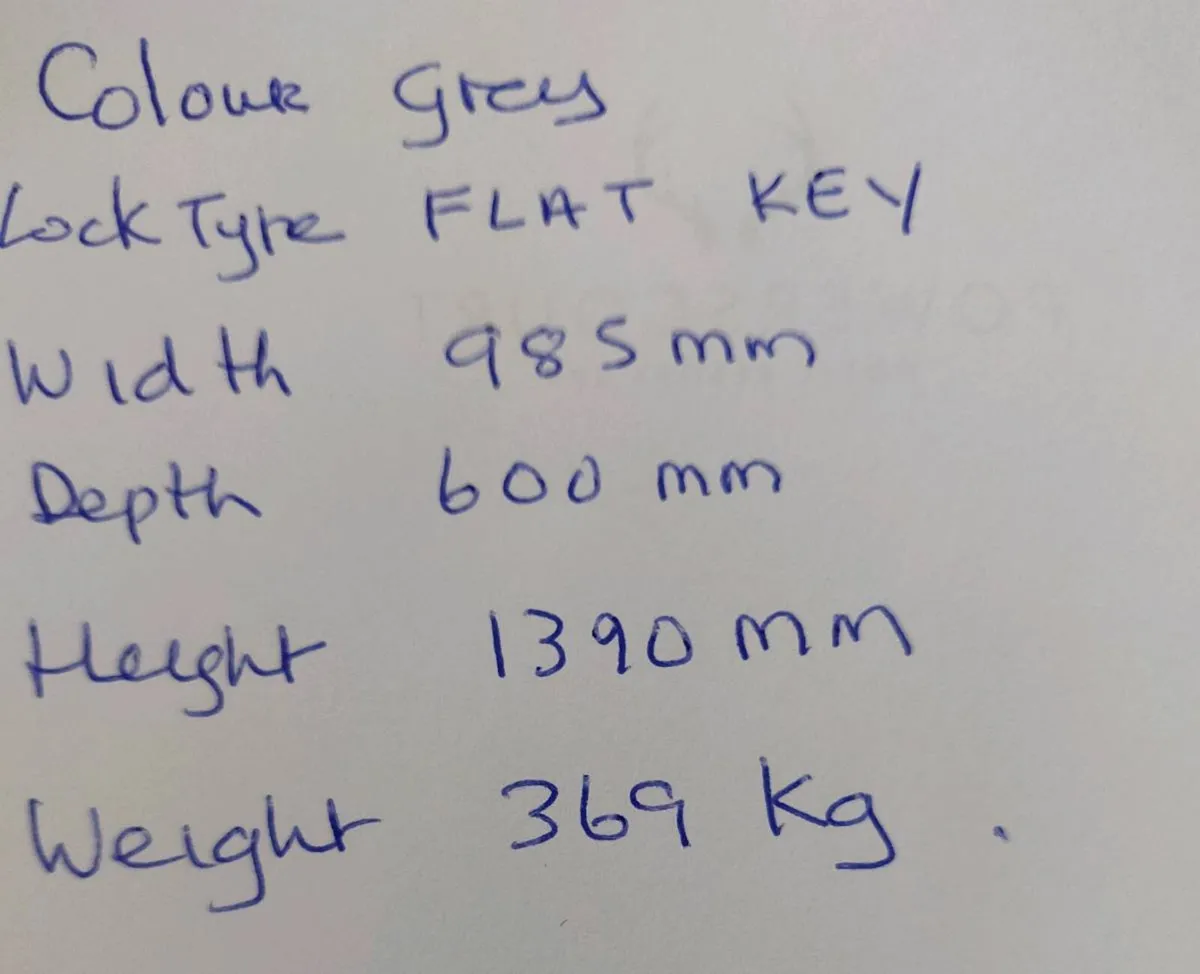 Colour Grey
Lock Type FLAT KEY
Width 985 mm
Depth 600 mm
Height 1390 mm
Weight 369 Kg.